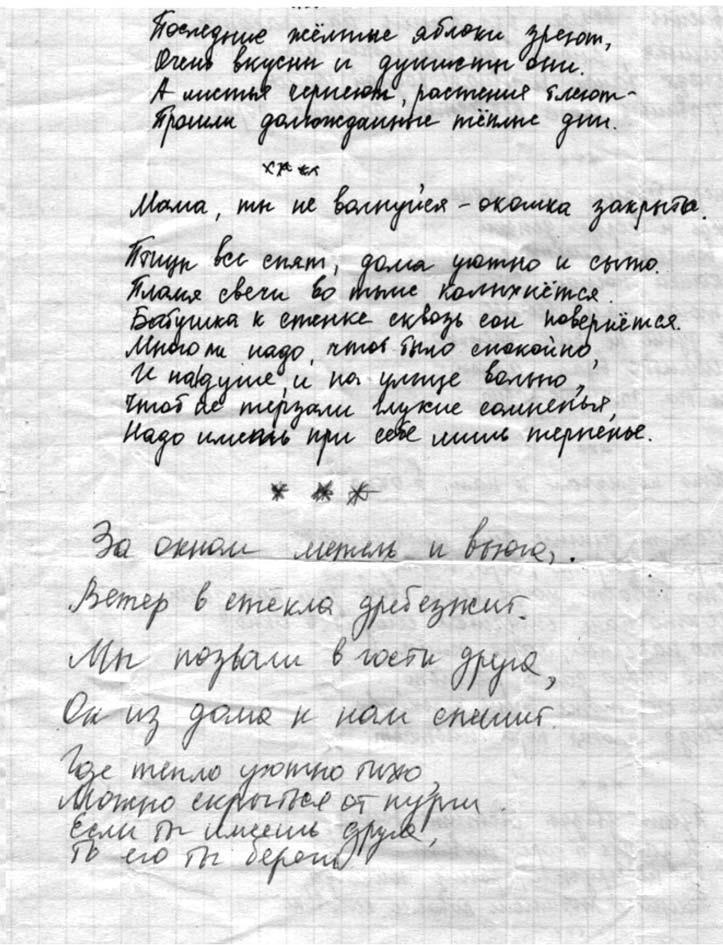 Последние жёлтые яблоки зреют,
Очень вкусны и душисты они.
А листья чернеют, растения тлеют -
Прошли долгожданные тёплые дни.
***
Мама, ты не волнуйся - окошка закрыта.
Птицы все спят, дома уютно и сыто.
Пламя свечи во тьме колыхнётся.
Бабушка к стенке сквозь сон повернётся.
Много ли надо, чтоб было спокойно,
И на душе, и на улице вольно,
Чтоб не терзали глухие сомненья,
Надо иметь при себе лишь терпенье.
* * *
За окном метель и вьюга,.
Ветер в стёкла дребезжит.
Мы позвали в гости друга,
Он из дома к нам спешит.
Где тепло уютно тихо,
Можно скрыться от пурги.
Если ты имеешь друга,
То его ты береги